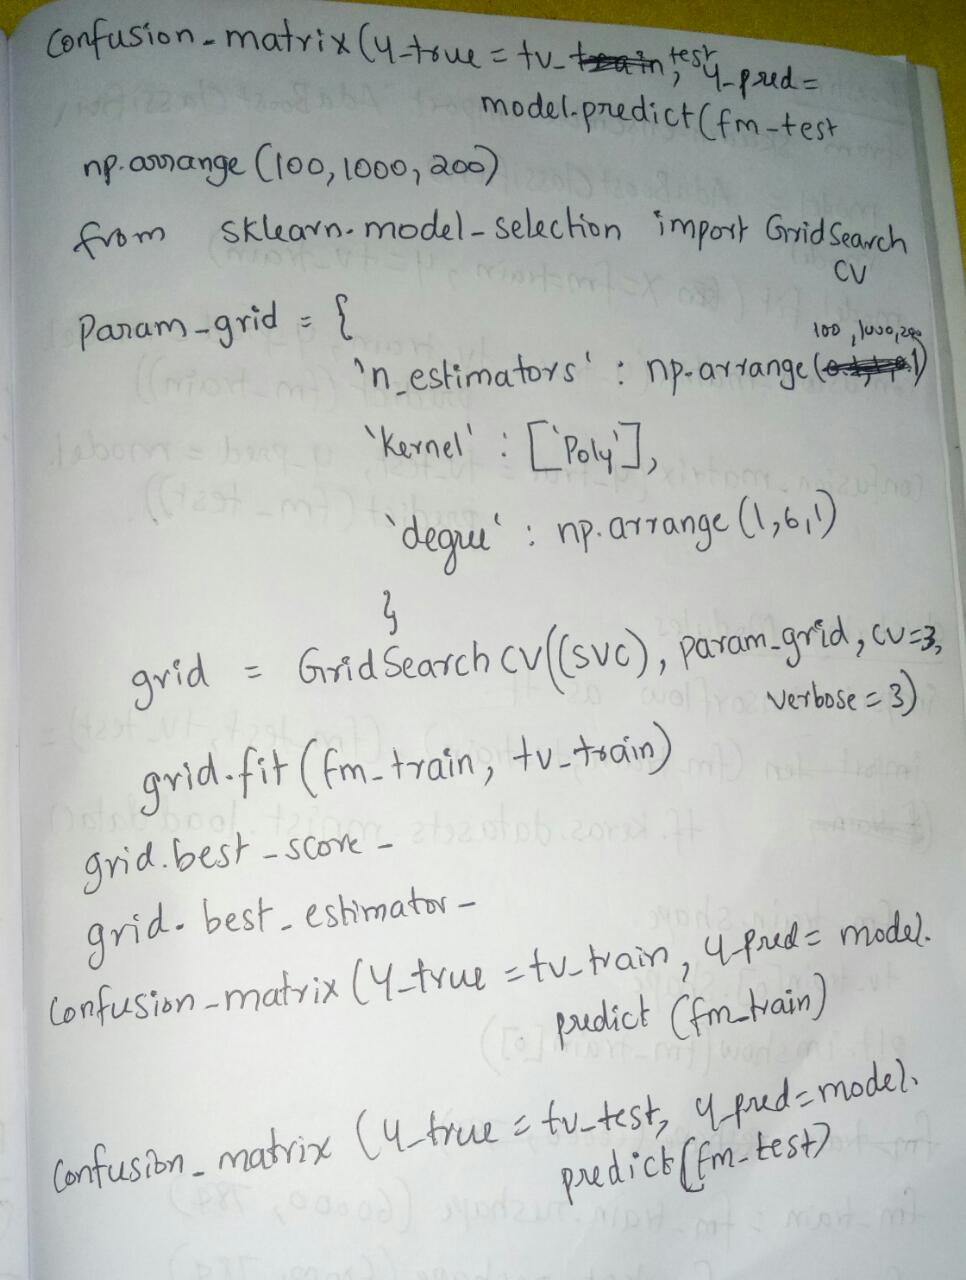 Confusion_matrix(y_true = tv_test, y_pred =
model.predict(fm_test
np.arrange (100, 1000, 200)
from sklearn.model_selection import GridSearch
CV
Param_grid = {
100, 1000, 200
'n_estimators' : np.arrange( )
'Kernel' : ['Poly'],
'degree' : np.arrange (1,6,1)
}
grid = GridSearchCV((SVC), param_grid, cv=3,
verbose = 3)
grid.fit (fm_train, tv_train)
grid.best_score_
grid.best_estimator_
Confusion_matrix (y_true = tv_train, y_pred = model.
predict (fm_train)
Confusion_matrix (y_true = tv_test, y_pred = model.
predict (fm_test)